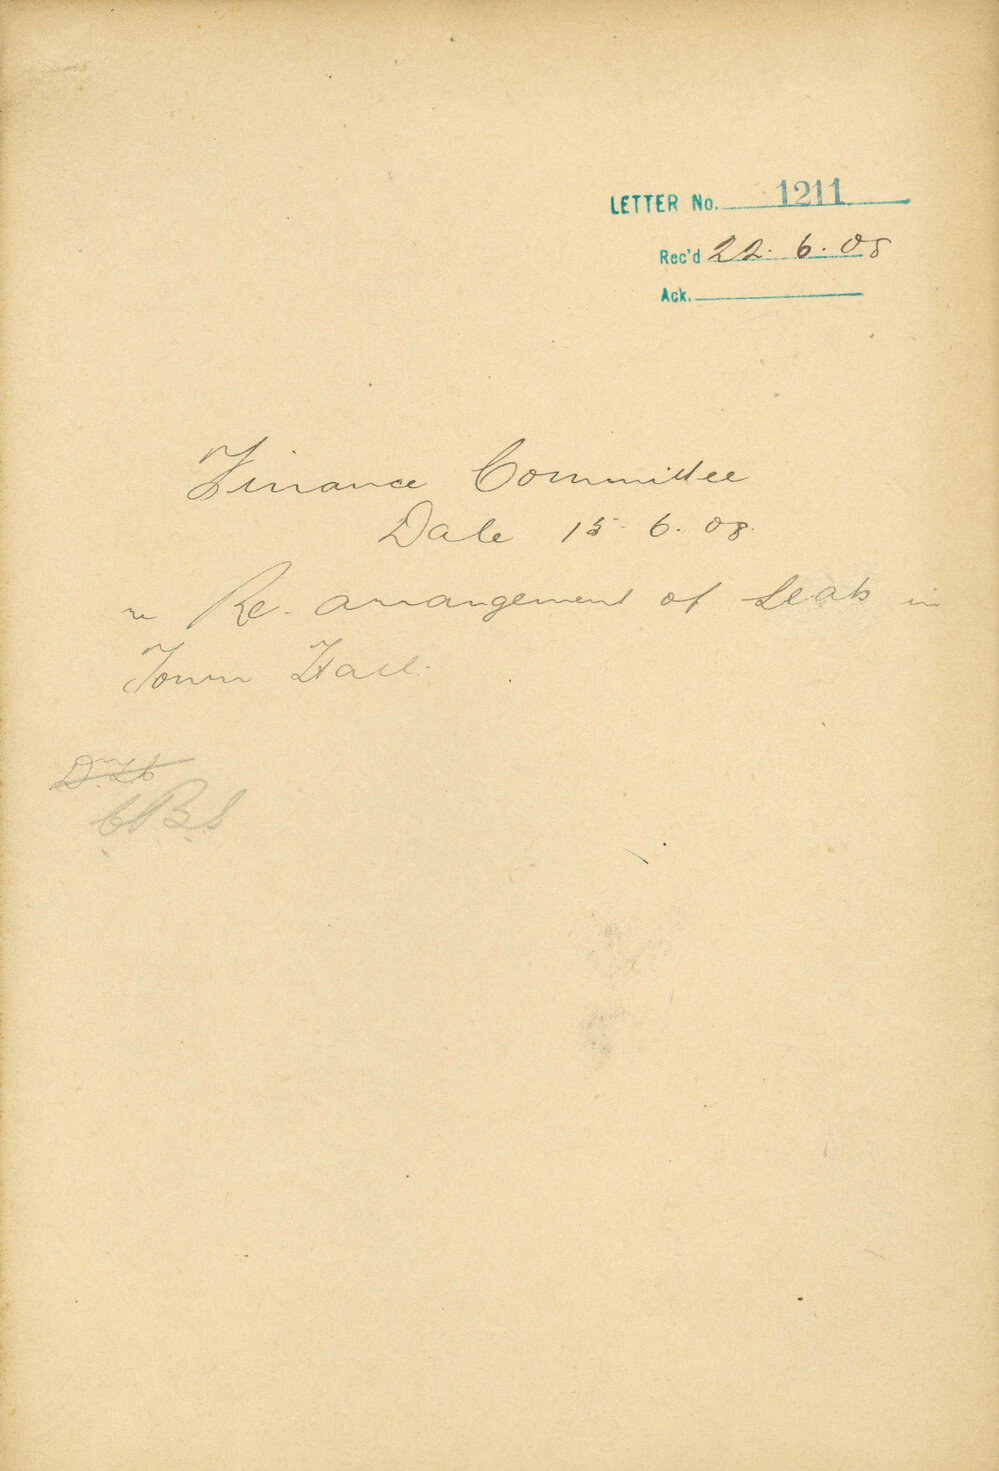 LETTER No. 1211
Rec'd 22. 6. 08
Ack.
Finance Committee
Date 15. 6. 08.
re Re-arrangement of Seats in
Town Hall.